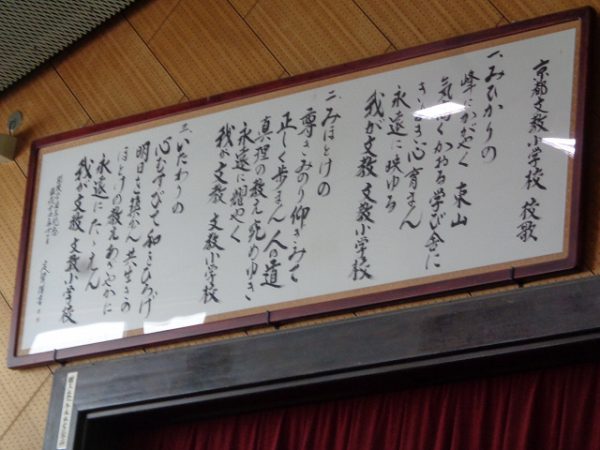 京都文教小学校 校歌
一、みひかりの
峰にかがやく 東山
気高くかおる学び舎に
きよき心育まん
永遠に映ゆる
我が文教 文教小学校
二、みほとけの
尊きみのり仰ぎみて
正しく歩まん 人の道
真理の教え究めゆき
永遠に耀やく
我が文教 文教小学校
三、いたわりの
心むすびて和をひろげ
明日を築かん 共生きの
ほとけの教えあざやかに
永遠にたゝえん
我が文教 文教小学校